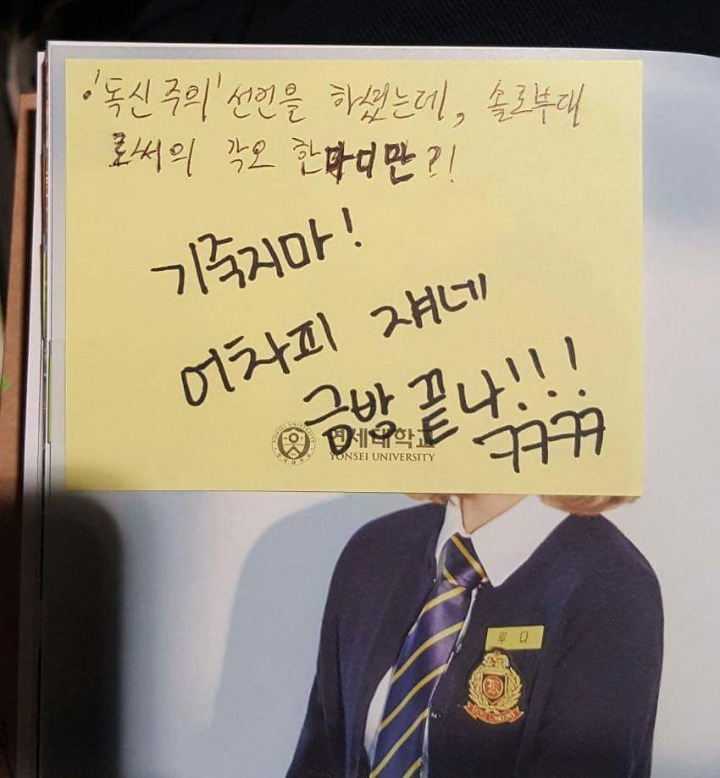 '독신 주의' 선언을 하셨는데, 솔로부대
로써의 각오 한마디만?!
기죽지마!
어차피 쟤네
금방 끝나!!!
ㅋㅋㅋㅋ
연세대학교
YONSEI UNIVERSITY
루다